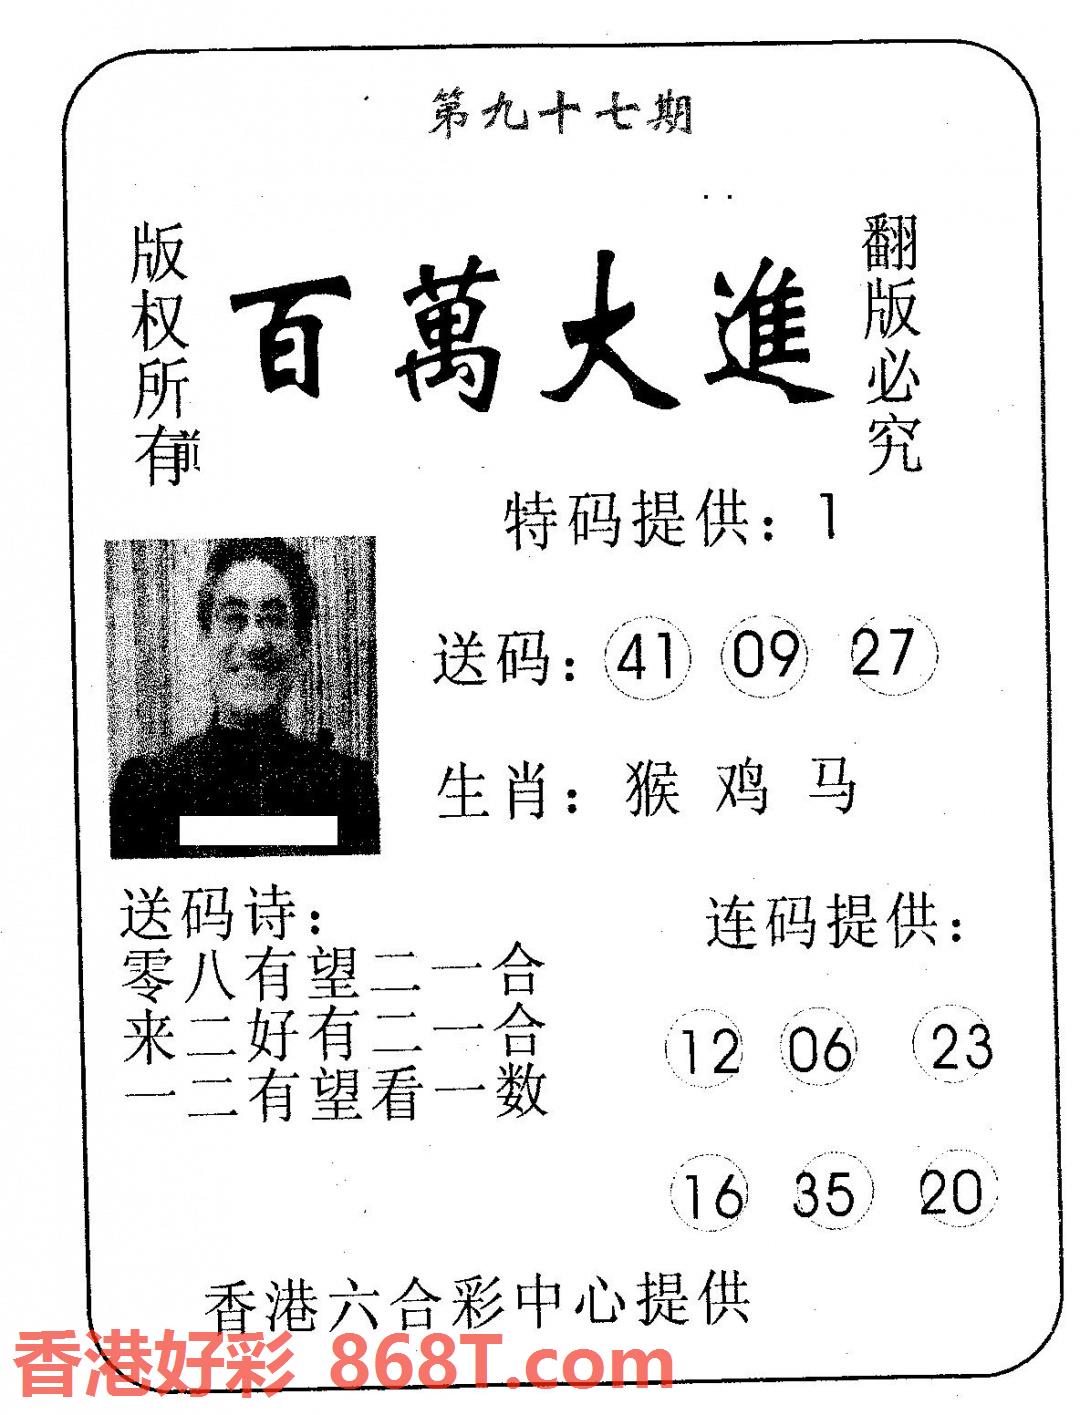 第九十七期
版权所有
百萬大進
翻版必究
特码提供：1
送码：41 09 27
生肖：猴 鸡 马
送码诗：
零八有望二一合
来二好有二一合
一二有望看一数
连码提供：
12 06 23
16 35 20
香港六合彩中心提供
香港好彩 868T.com